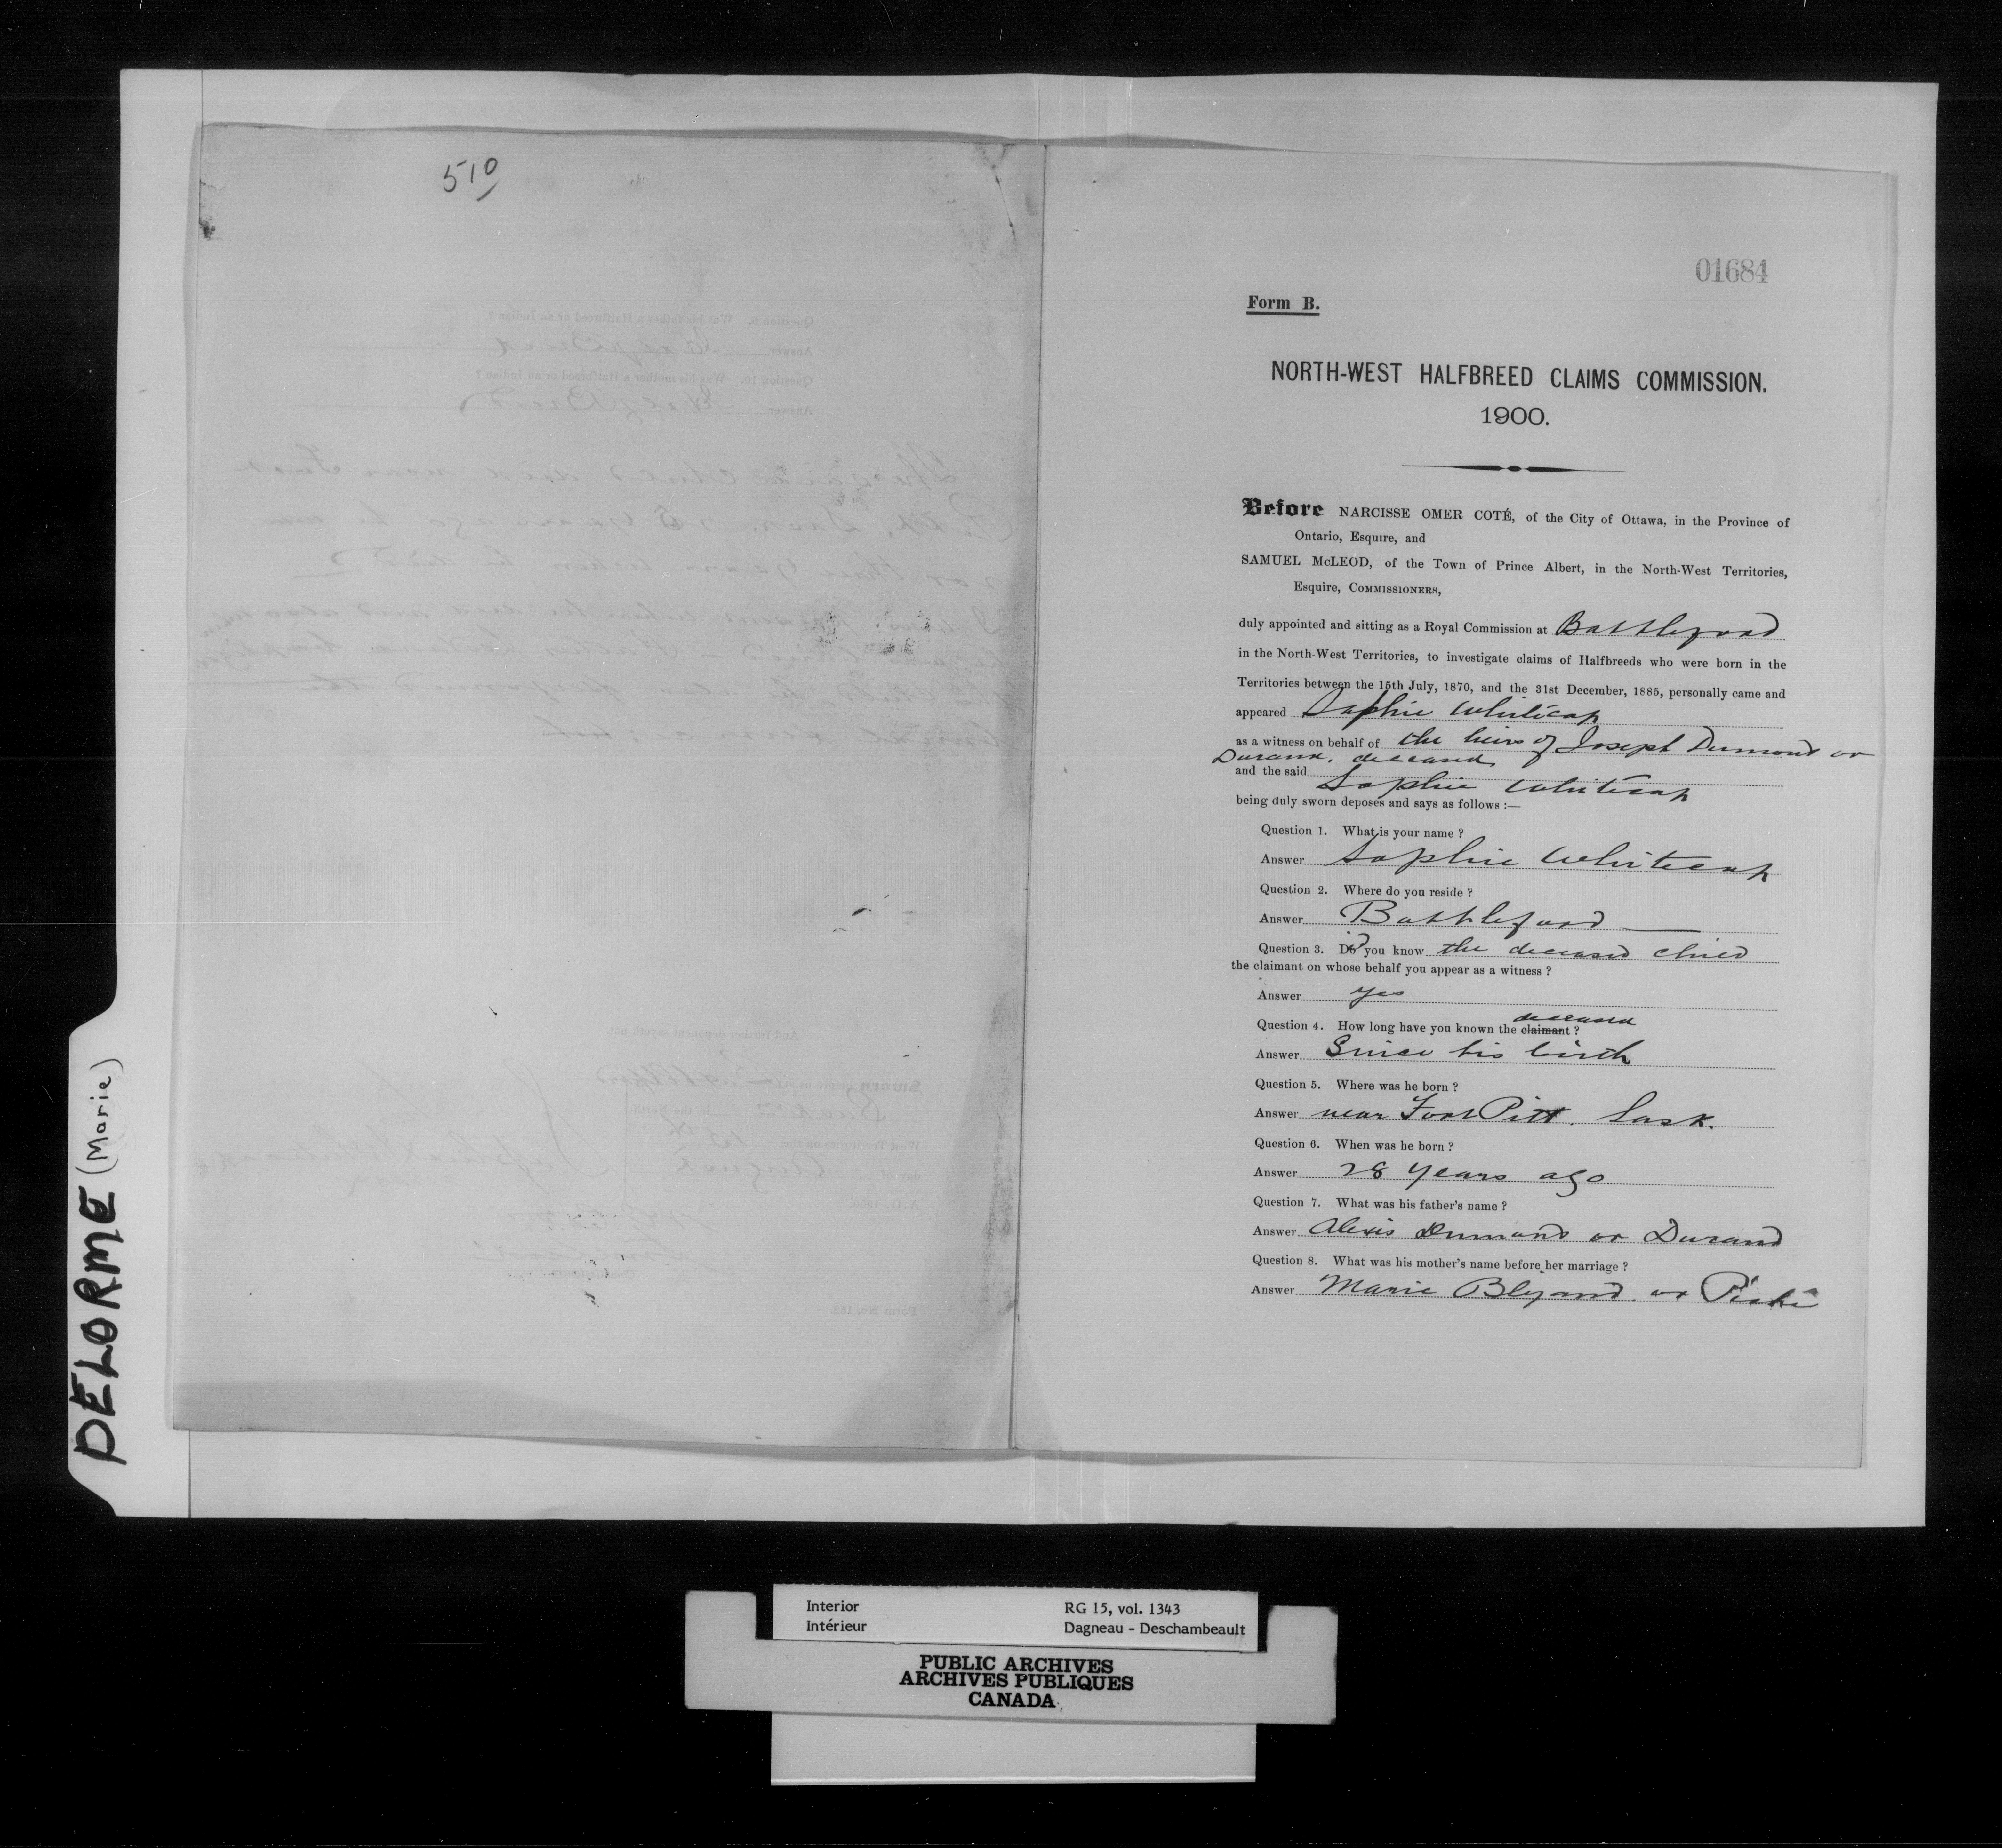 510
01684
Form B.
NORTH-WEST HALFBREED CLAIMS COMMISSION.
1900.
Before NARCISSE OMER COTÉ, of the City of Ottawa, in the Province of
Ontario, Esquire, and
SAMUEL McLEOD, of the Town of Prince Albert, in the North-West Territories,
Esquire, COMMISSIONERS,
duly appointed and sitting as a Royal Commission at Battleford
in the North-West Territories, to investigate claims of Halfbreeds who were born in the
Territories between the 15th July, 1870, and the 31st December, 1885, personally came and
appeared Sophie Whitecap
as a witness on behalf of the heirs of Joseph Dumond or
Durand, deceased
and the said Sophie Whitecap
being duly sworn deposes and says as follows :—
Question 1. What is your name ?
Answer Sophie Whitecap
Question 2. Where do you reside ?
Answer Battleford
Question 3. Did you know the deceased child
the claimant on whose behalf you appear as a witness ?
Answer yes
deceased
Question 4. How long have you known the claimant ?
Answer Since his birth
Question 5. Where was he born ?
Answer near Fort Pitt. Sask.
Question 6. When was he born ?
Answer 28 years ago
Question 7. What was his father's name ?
Answer Alexis Dumond or Durand
Question 8. What was his mother's name before her marriage ?
Answer Marie Blyand or
DELORME (Marie)
Interior
Intérieur
RG 15, vol. 1343
Dagneau - Deschambeault
PUBLIC ARCHIVES
ARCHIVES PUBLIQUES
CANADA